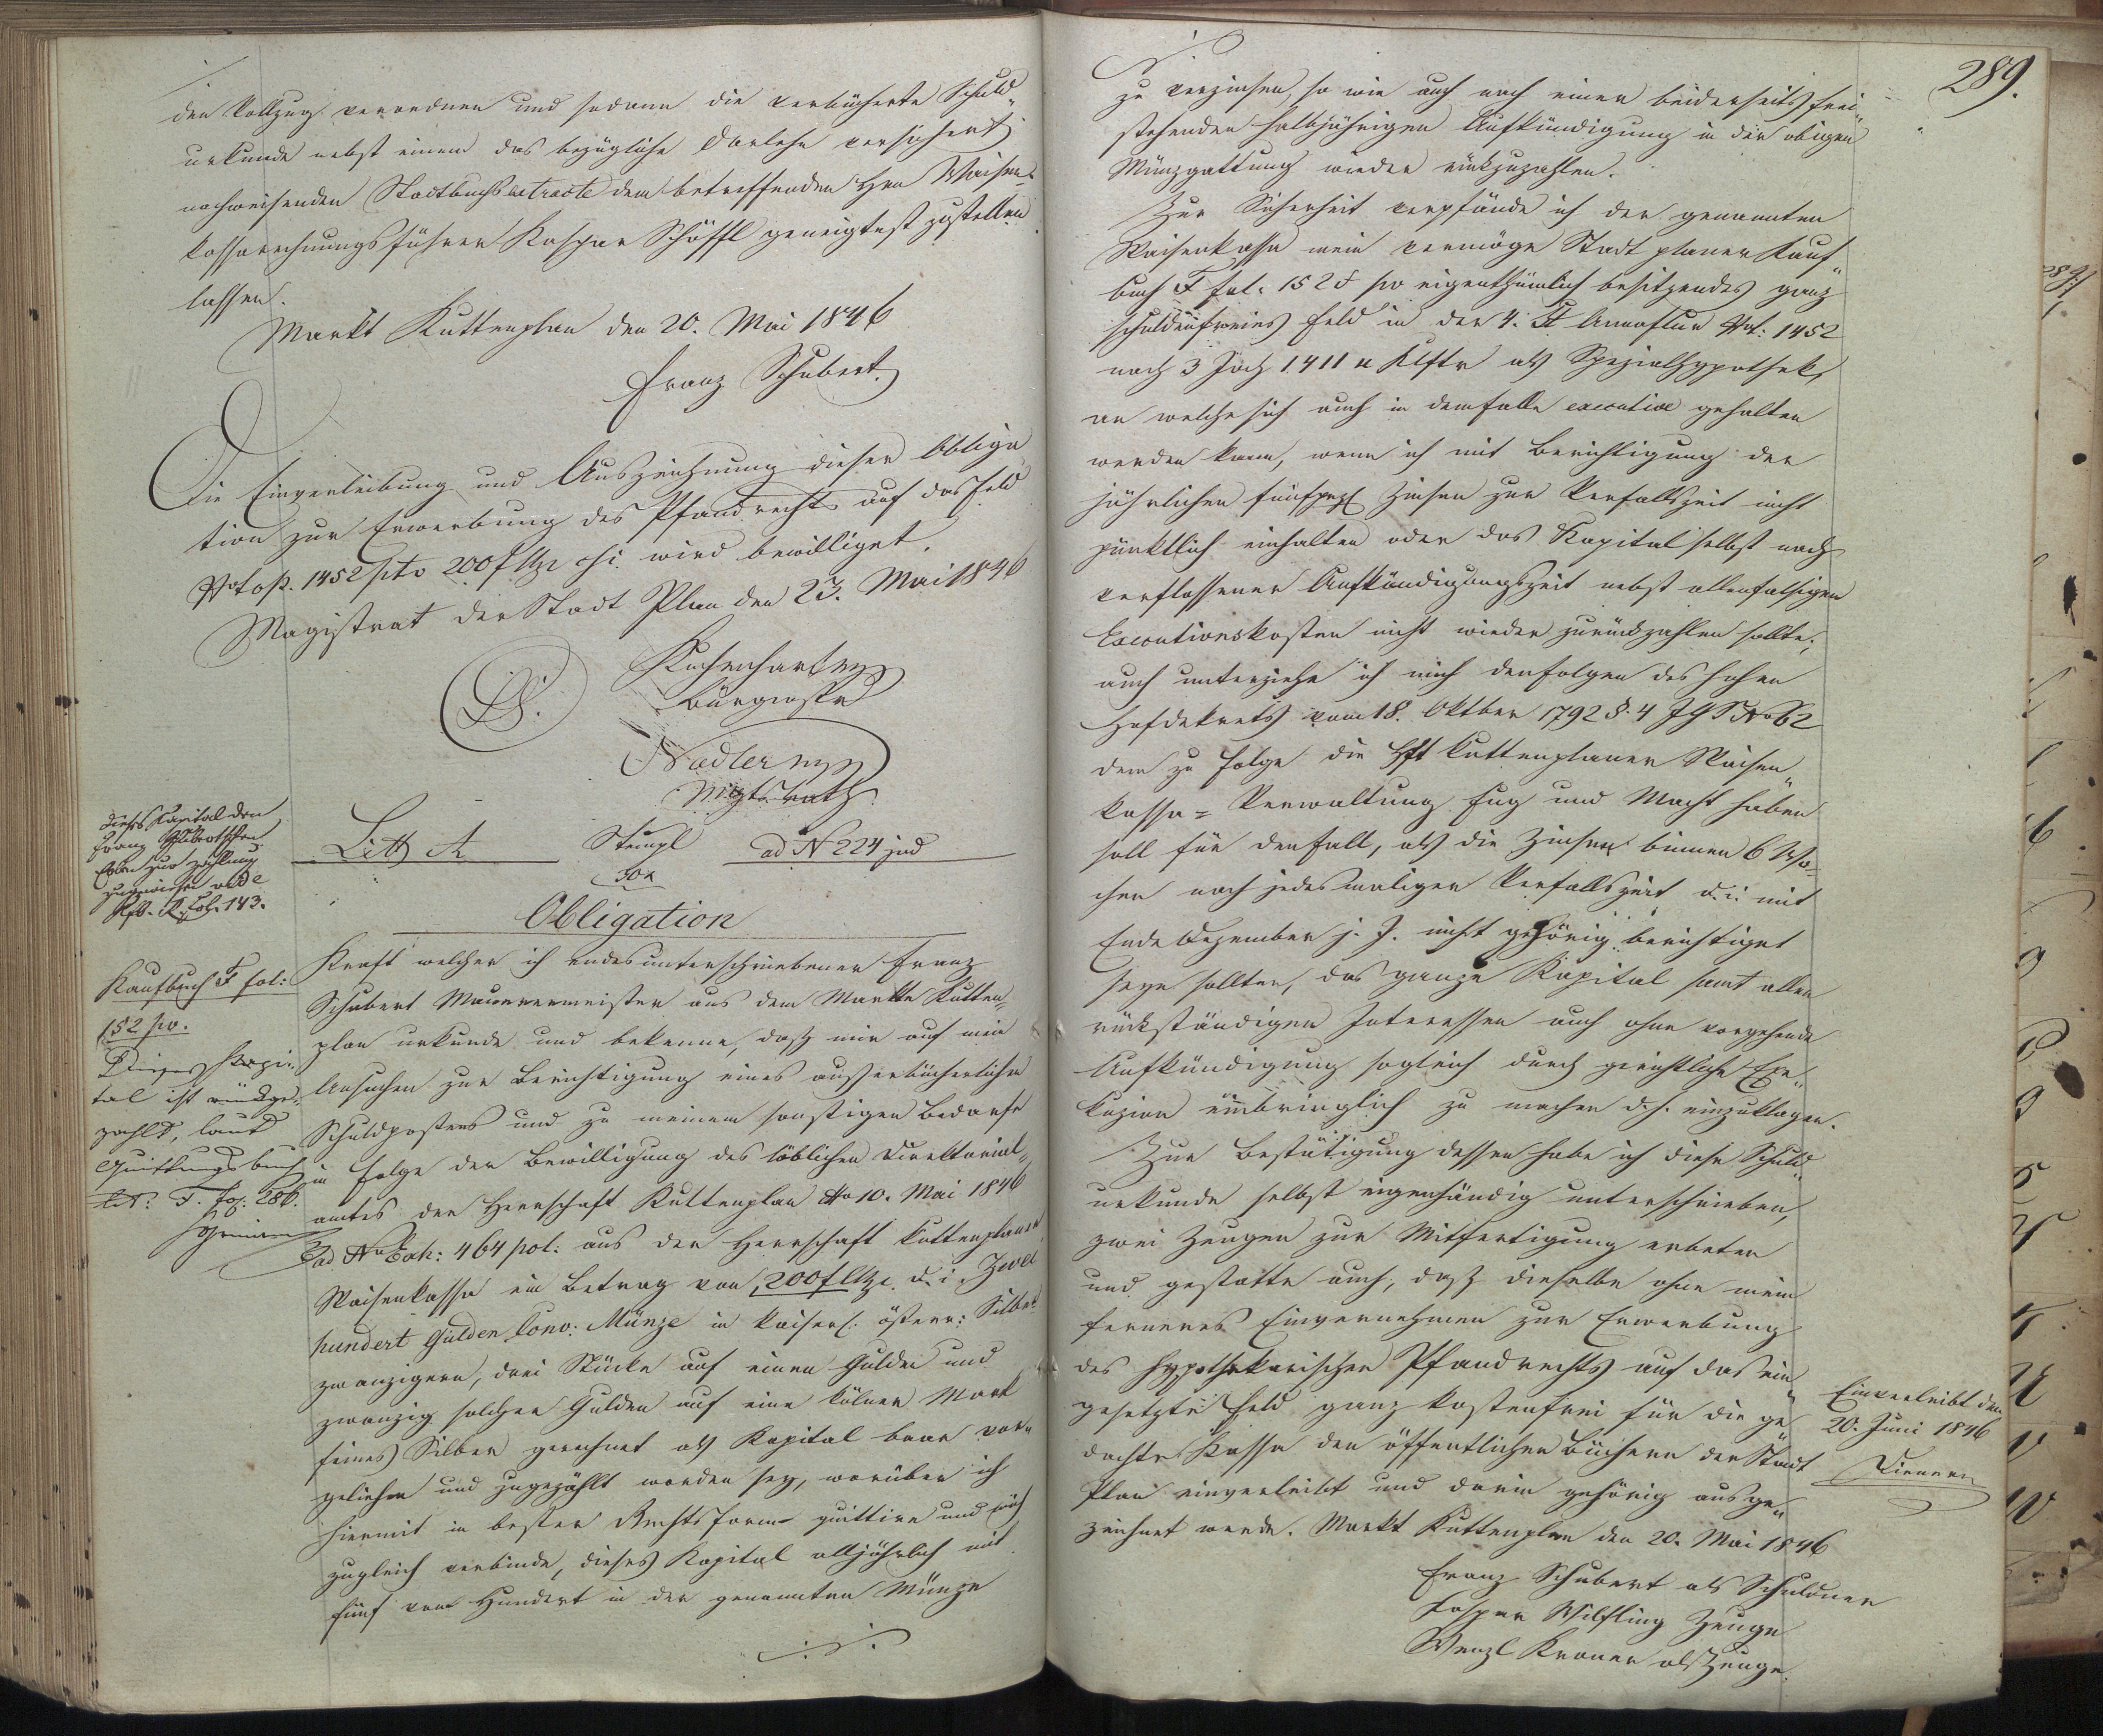 den Vollzug verordnen und sodann die verbücherte Schuld„
urkunde nebst einem das bezügliche Darlehn versichert
nachweisenden Stadtbuchsextracte dem betreffenden Hrn Waisen„
kassarechnungsführer Kaspar Schöffl geneigtest zustellen
lassen.
Markt Kuttenplan den 20. Mai 1846
Franz Schubert
Die Einverleibung und Auszeichnung dieser Obliga„
tion zur Erwerbung des Pfandrechts auf das Feld
Nof. 1452 pto 200 f CMze csi. wird bewilliget.
Magistrat der Stadt Plan den 23. Mai 1846
LS.
Bürgermstr
Nadler mpp
Mgtsrath
dieses Kapital den
Franz Schubertschen
Erben zur Zahlung
zugewiesen vide
fol. 143.
Litt A Stempl ad N 224 jud
30x
Obligation
Kaufbuch F fol:
152 pv.
Dieses Kapi„
tal ist rückge„
zahlt, laut
Quittungsbuch
lit: F. fol: 286.
Kraft welcher ich endesunterschriebener Franz
Schubert Maurermeister aus dem Markte Kutten„
plan urkunde und bekenne, daß mir auf mein
Ansuchen zur Berichtigung eines außerbücherlichen
Schuldpostens und zu meinem sonstigen Bedarfe
in Folge der Bewilligung des löblichen Direktorial„
amtes der Herrschaft Kuttenplan ddo 10. Mai 1846
ad No Exh: 464 pol: aus der Herrschaft Kuttenplaner
Waisenkassa ein Betrag von 200 f CMze d. i. Zwei
hundert Gulden Conv: Münze in kaiserl. österr: Silber
zwanzigern, drei Stücke auf einen Gulden und
zwanzig solcher Gulden auf eine kölner Mark
feines Silber gerechnet als Kapital baar vor„
geliehen und zugezählt worden sey, worüber ich
hiermit in bester Rechtsform quittire und mich
zugleich verbinde, dieses Kapital alljährlich mit
fünf vom Hundert in der genannten Münze
./.
289.
./.
zu verzinsen, so wie auch nach einer beiderseits frei„
stehenden halbjährigen Aufkündigung in der obigen
Münzgattung wieder rückzuzahlen.
Zur Sicherheit verpfände ich der genannten
Waisenkassa mein vermöge Stadt planer Kauf„
buch F fol: 152 pv eigenthümlich besitzendes ganz
schuldenfreies Feld in der 4. Annaflur Nof: 1452
nach 3 Joch 1411 □ Klftr als Spezialhypothek,
an welche sich auch in dem Falle executive gehalten
werden kann, wenn ich mit Berichtigung der
jährlichen fünfpzt Zinsen zur Verfallszeit nicht
pünktlich einhalten oder das Kapital selbst nach
verflossener Aufkündigungszeit nebst allenfalsigen
Executionskosten nicht wieder zurückzahlen sollte,
auch unterziehe ich mich den Folgen des hohen
Hofdekrets vom 18. Oktber 1792 §. 4 JGS No 62
dem zu Folge die Hft Kuttenplaner Waisen„
kassa=Verwaltung Fug und Macht haben
soll für den Fall, als die Zinsen binnen 6 Wo„
chen nach jedesmaliger Verfallszeit d. i. mit
Ende Dezember j. J. nicht gehörig berichtiget
seyn sollten, das ganze Kapital samt allen
rückständigen Interessen auch ohne vorgehende
Aufkündigung sogleich durch gerichtliche Exe„
kuzion einbringlich zu machen d. h. einzuklagen.
Zur Bestätigung dessen habe ich diese Schuld„
urkunde selbst eigenhändig unterschrieben,
zwei Zeugen zur Mitfertigung erbeten
und gestatte auch, daß dieselbe ohne mein
ferneres Einvernehmen zur Erwerbung
des hypothekarischen Pfandrechts auf das ein„
gesetzte Feld ganz kostenfrei für die ge„
dachte Kassa den öffentlichen Büchern der Stadt
Plan einverleibt und darin gehörig ausge„
zeichnet werde. Markt Kuttenplan den 20. Mai 1846
Franz Schubert als Schuldner
Kaspar Wilfling Zeuge
Wenzl Kroner als Zeuge.
Einverleibt den
20. Juni 1846